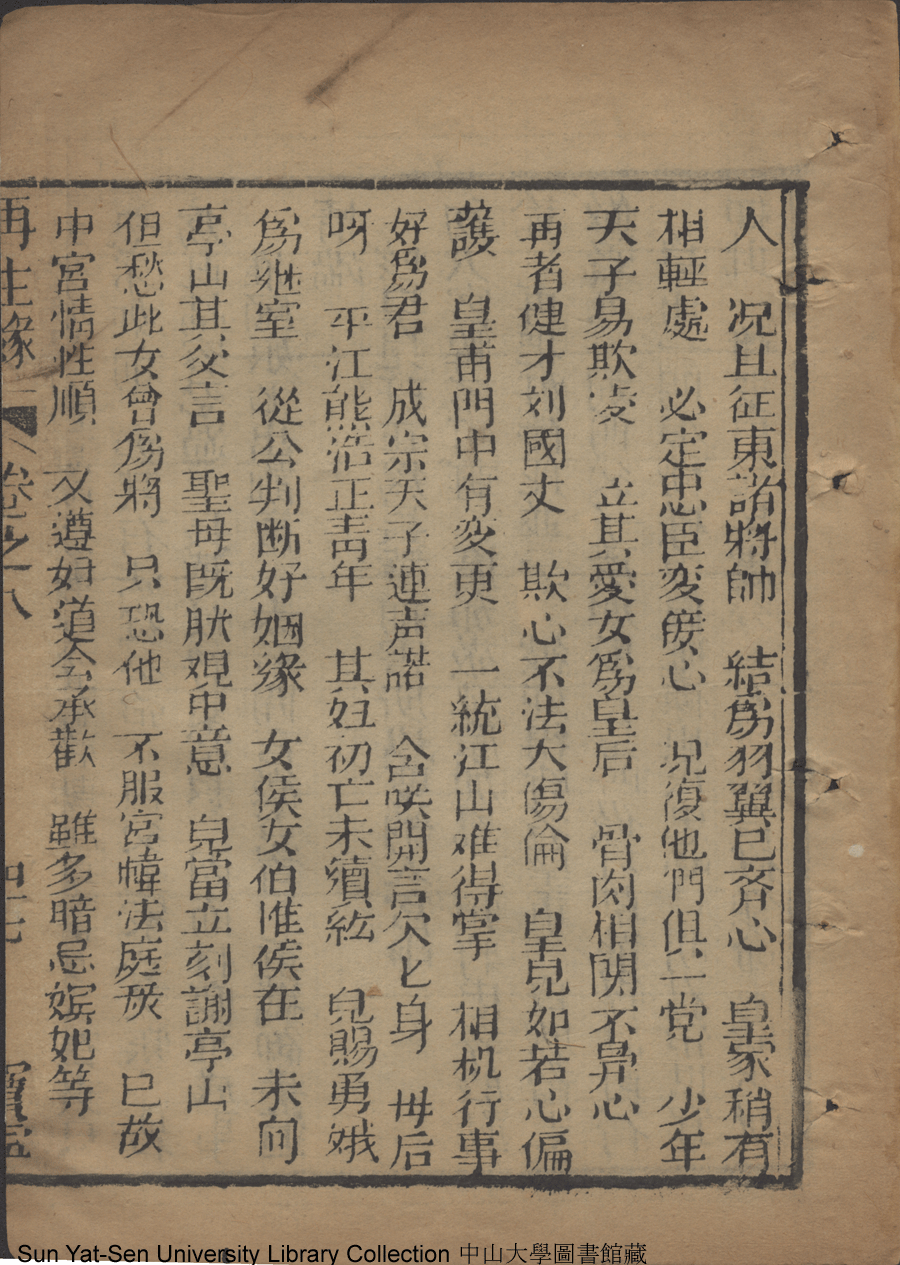 人　况且征東諸將帥　結為羽翼已齐心　皇家稍有
相輕處　必定忠臣变俀心　况復他們俱一党　少年
天子易欺凌　立其愛女為皇后　骨肉相関不異心
再者健才刘國丈　欺心不法大傷倫　皇兒如若心偏
護　皇甫門中有变更　一統江山难得掌　相机行事
好為君　成宗天子連声諾　含笑開言欠匕身　母后
呀　平江熊浩正青年　其妇初亡未續絃　兒賜勇娥
為继室　從公判断好姻缘　女侯女伯惟侯在　未向
亭山其父言　聖母既肰覌中意　皃當立刻謝亭山
但愁此女曾為将　只恐他　不服宮幃法庭矦　已故
中宮情性順　又遵妇道会承歡　雖多暗忌嬪妃等
再生缘　卷之八　四十七　寳
Sun Yat-Sen University Library Collection 中山大學圖書館藏